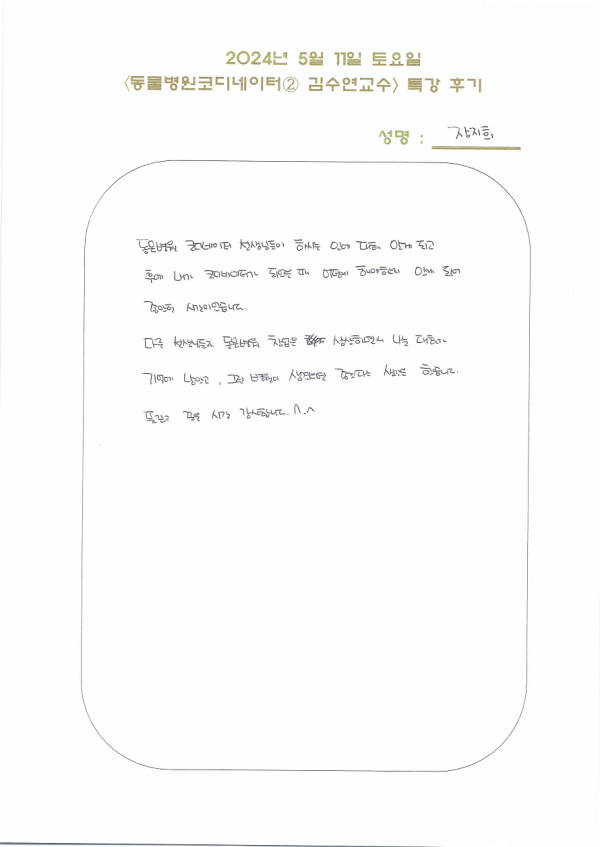 2024년 5월 11일 토요일
<동물병원코디네이터② 김수연교수> 특강 후기
성명 : 장지희
동물병원 코디네이터 선생님들이 하시는 일에 대해 알게 되고
후에 내가 코디네이터가 되었을 때 어떻게 해야하는지 알게 되어
좋았던 시간이었습니다.
다른 선생님들과 동물병원 창업을 상상하면서 나눈 대화가
기억에 남았고, 그런 병원이 생긴다면 좋겠다는 생각을 했습니다.
즐겁고 좋은 시간 감사합니다. ^.^